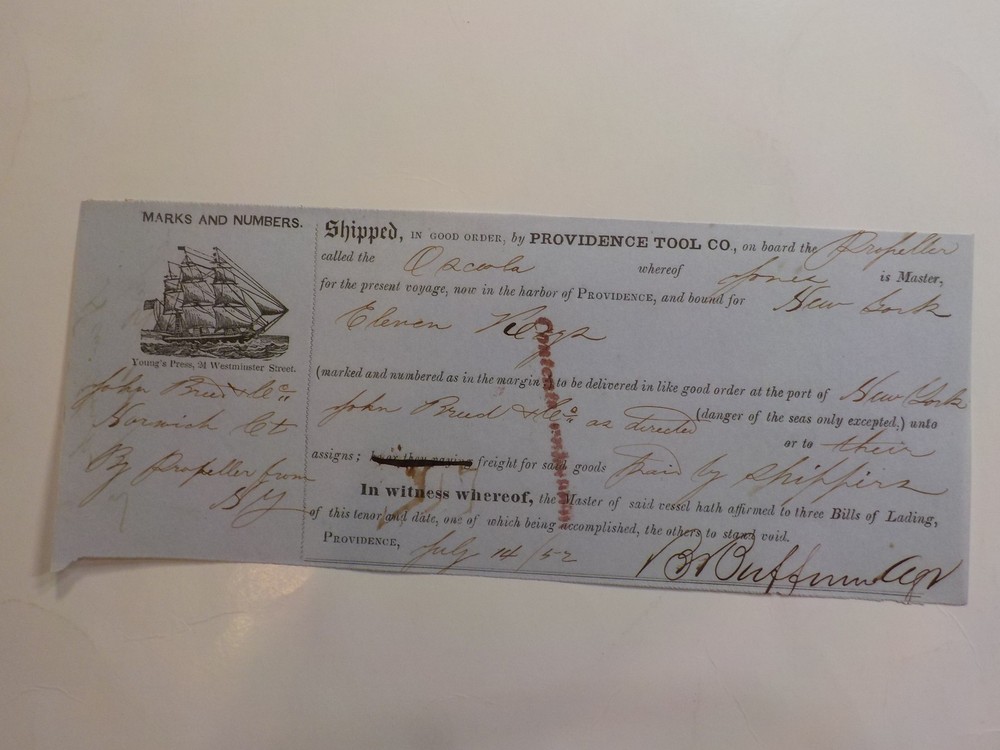 MARKS AND NUMBERS.
Young's Press, 24 Westminster Street.
John Breed & Co
Norwich Ct
By Propeller from
N Y
Shipped, IN GOOD ORDER, by PROVIDENCE TOOL CO., on board the Propeller
called the Osceola whereof Jones is Master,
for the present voyage, now in the harbor of PROVIDENCE, and bound for New York
Eleven Kegs
(marked and numbered as in the margin) to be delivered in like good order at the port of New York
(danger of the seas only excepted,) unto
John Breed & Co as directed or to their
assigns; he or they paying freight for said goods Paid by Shippers
In witness whereof, the Master of said vessel hath affirmed to three Bills of Lading,
of this tenor and date, one of which being accomplished, the others to stand void.
PROVIDENCE, July 14/52
Buffum Agt